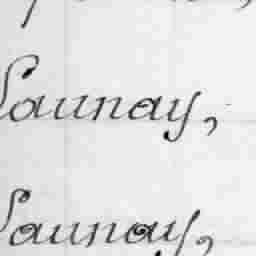 Launay,
Launay,